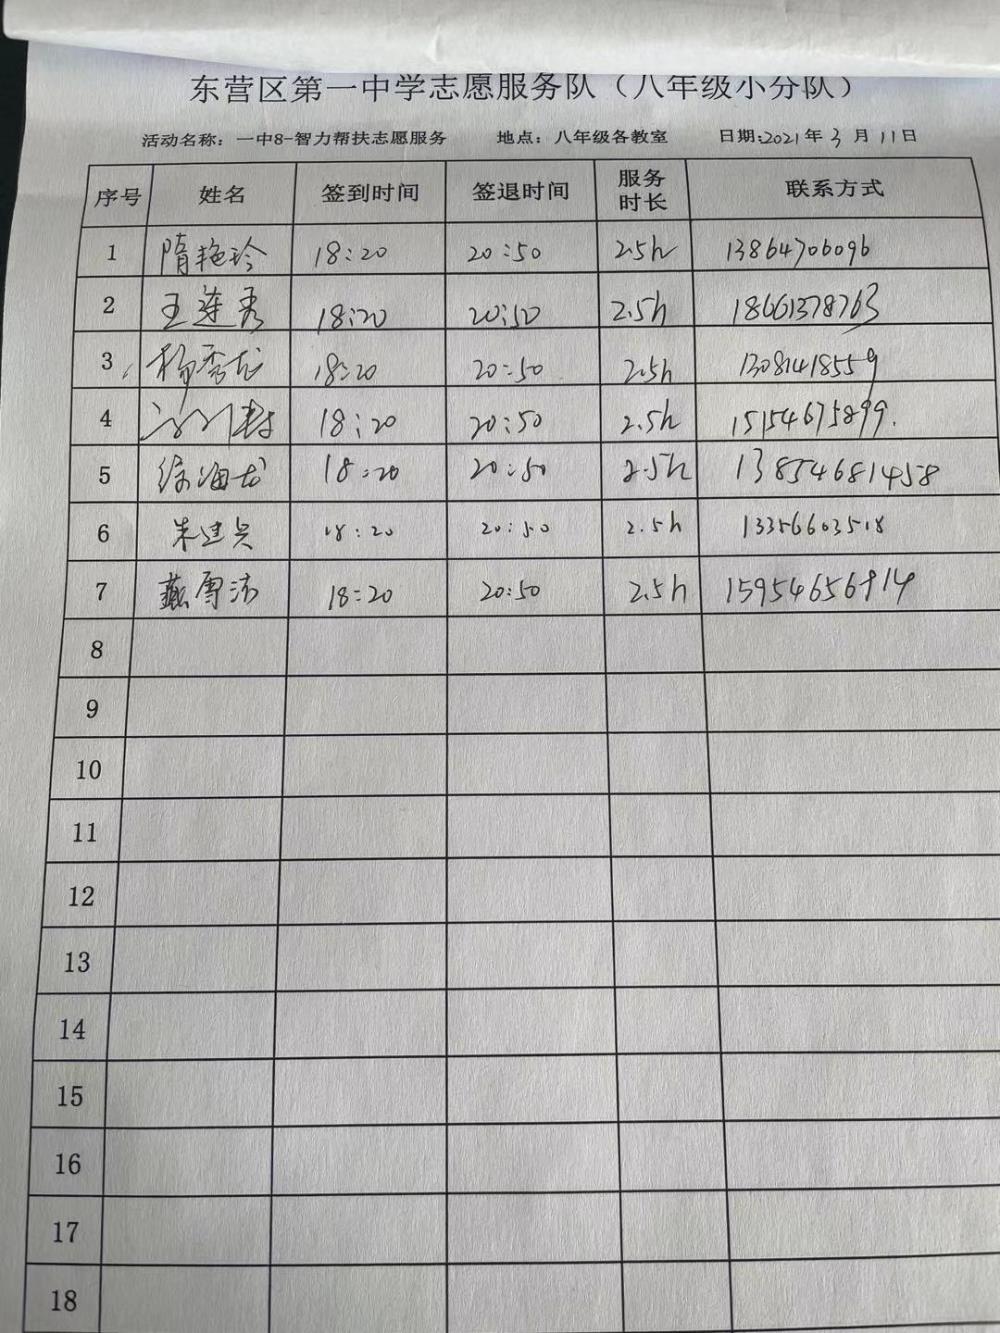 东营区第一中学志愿服务队（八年级小分队）
活动名称：一中8-智力帮扶志愿服务 地点：八年级各教室 日期:2021年3月11日
序号 姓名 签到时间 签退时间 服务时长 联系方式
1 隋艳玲 18:20 20:50 2.5h 13864706096
2 王连秀 18:20 20:50 2.5h 18661378763
3 杨秀龙 18:20 20:50 2.5h 13081418559
4 18:20 20:50 2.5h 15154675899.
5 徐海龙 18:20 20:50 2.5h 13854681458
6 朱建兵 18:20 20:50 2.5h 13356603518
7 18:20 20:50 2.5h
8
9
10
11
12
13
14
15
16
17
18